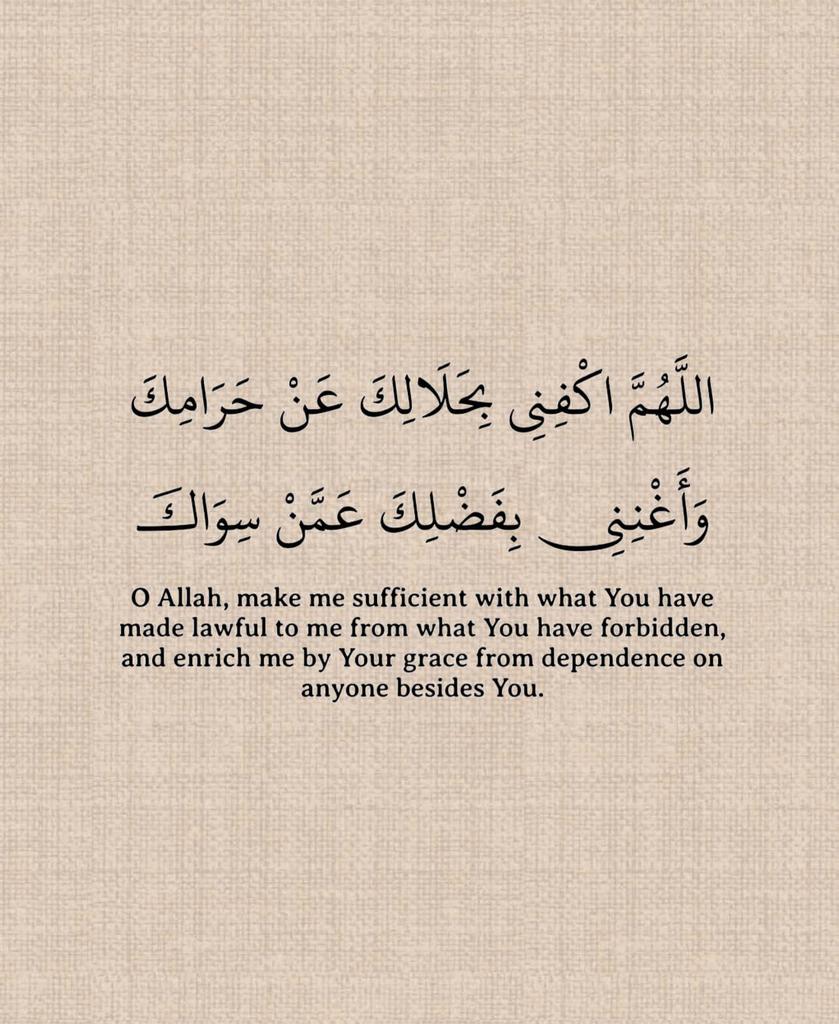 اللَّهُمَّ اكْفِنِي بِحَلَالِكَ عَنْ حَرَامِكَ
وَأَغْنِنِي بِفَضْلِكَ عَمَّنْ سِوَاكَ
O Allah, make me sufficient with what You have
made lawful to me from what You have forbidden,
and enrich me by Your grace from dependence on
anyone besides You.